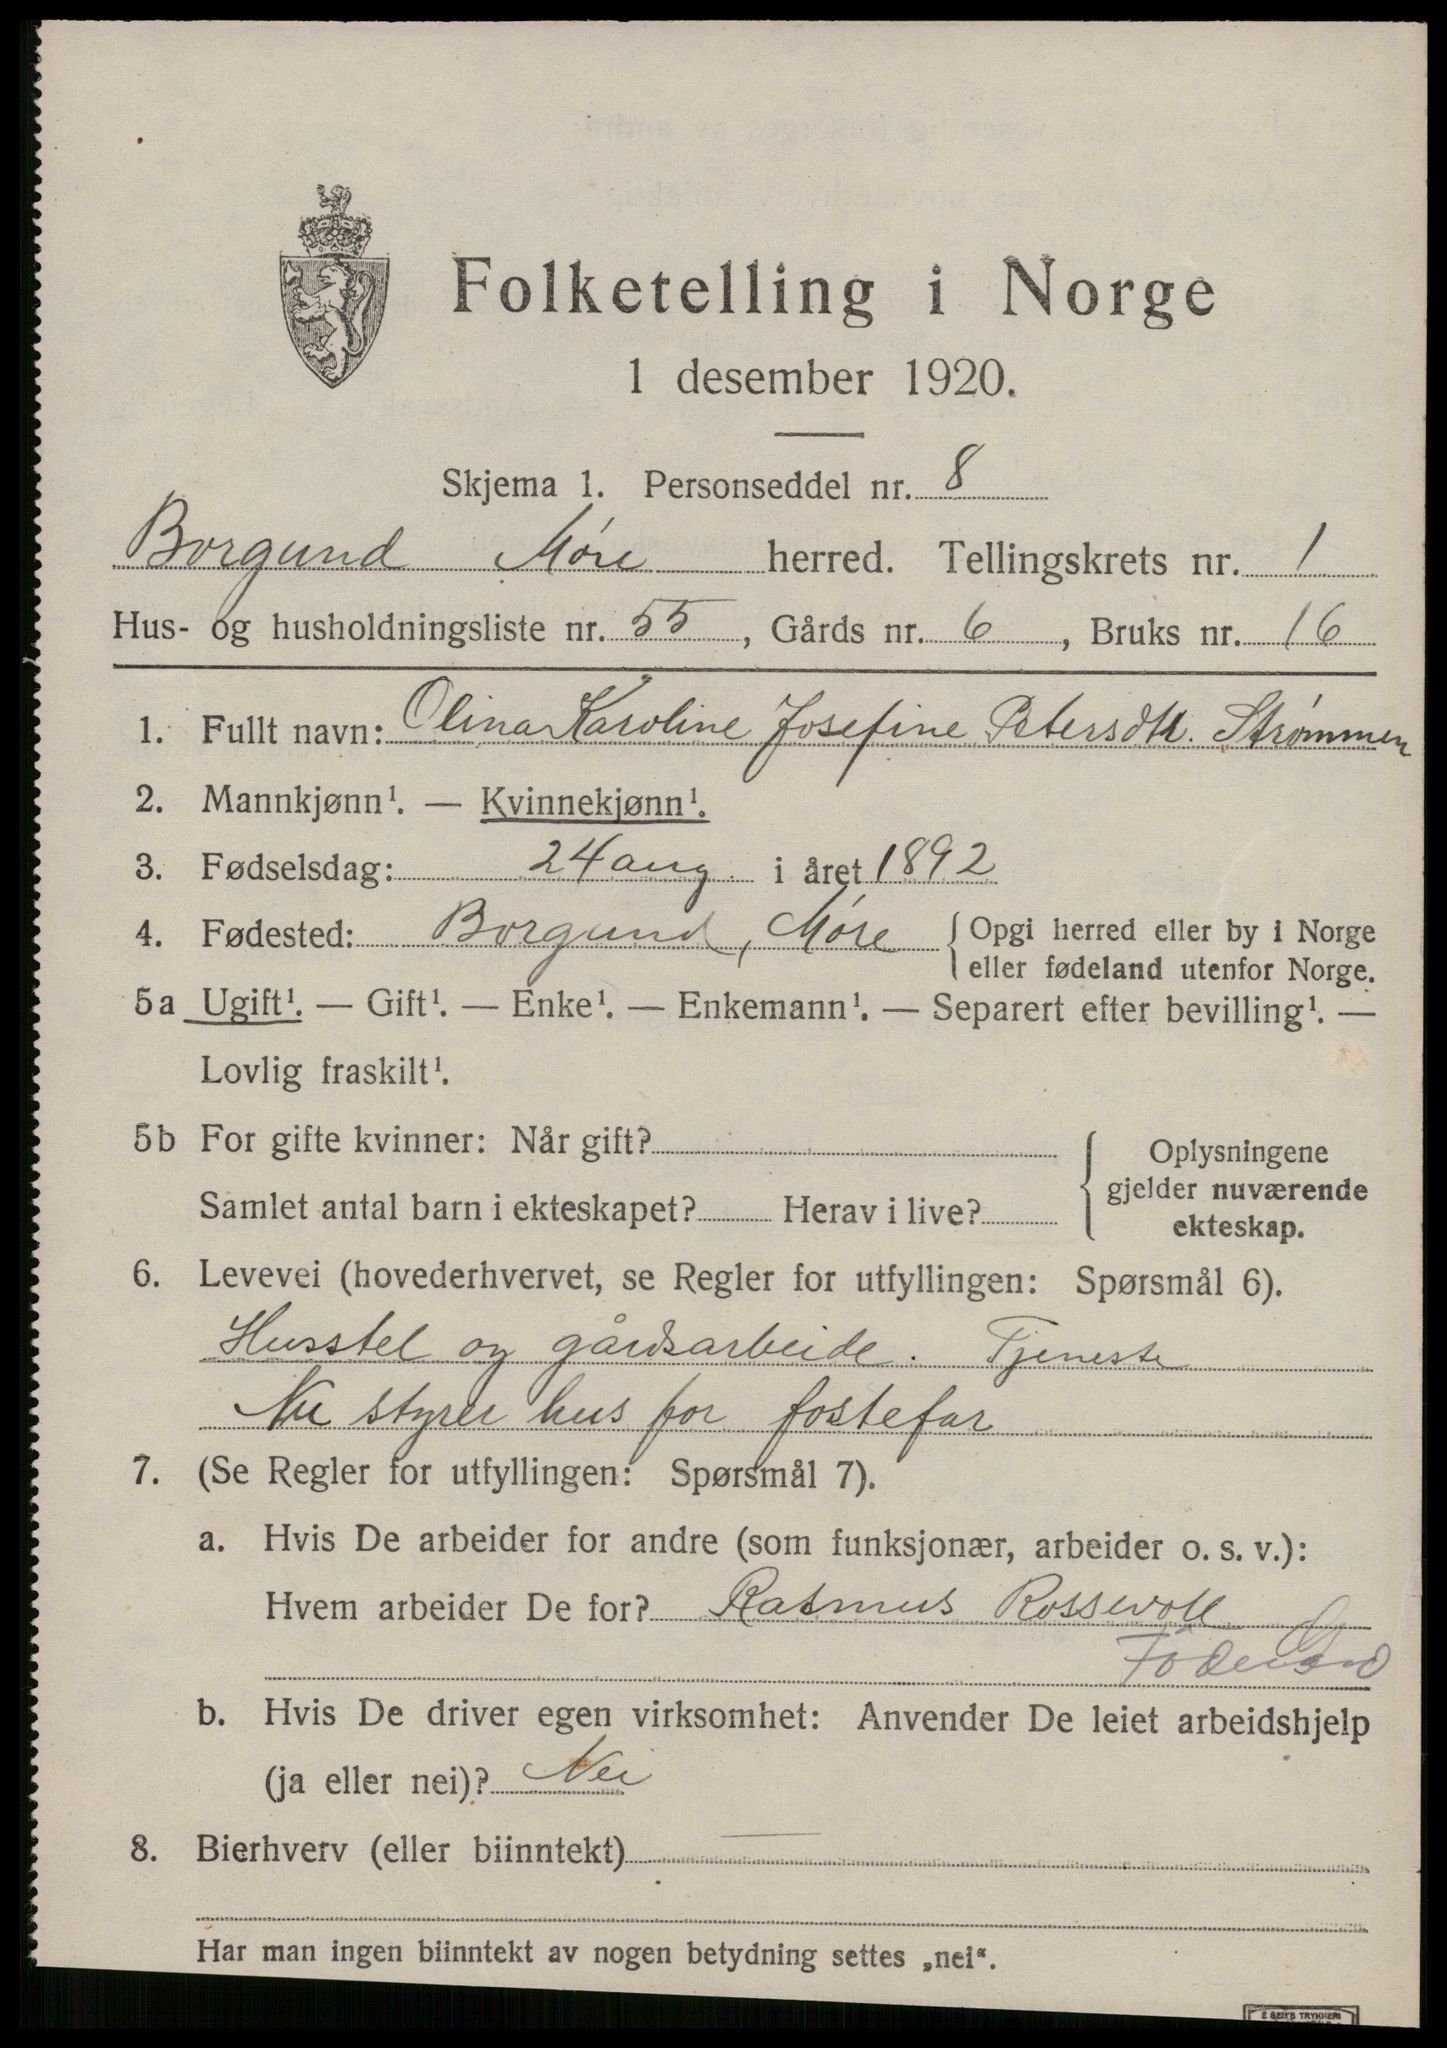 Folketelling i Norge
1 desember 1920.
Skjema 1. Personseddel nr. 8
Borgund Møre herred. Tellingskrets nr. 1
Hus- og husholdningsliste nr. 55, Gårds nr. 6, Bruks nr. 16
1. Fullt navn: Olina Karoline Josefine Petersdtr. Strømmen
2. Mannkjønn¹. — Kvinnekjønn¹.
3. Fødselsdag: 24 aug. i året 1892
4. Fødested: Borgund, Møre { Opgi herred eller by i Norge
eller fødeland utenfor Norge.
5a Ugift¹. — Gift¹. — Enke¹. — Enkemann¹. — Separert efter bevilling¹. —
Lovlig fraskilt¹.
5b For gifte kvinner: Når gift?
Samlet antal barn i ekteskapet? Herav i live?
{ Oplysningene
gjelder nuværende
ekteskap.
6. Levevei (hovederhvervet, se Regler for utfyllingen: Spørsmål 6).
Husstel og gårdsarbeide. Tjeneste
Nu styrer hus for fostefar
7. (Se Regler for utfyllingen: Spørsmål 7).
a. Hvis De arbeider for andre (som funksjonær, arbeider o. s. v.):
Hvem arbeider De for? Rasmus Rossevoll
b. Hvis De driver egen virksomhet: Anvender De leiet arbeidshjelp
(ja eller nei)? Nei
8. Bierhverv (eller biinntekt) —
Har man ingen biinntekt av nogen betydning settes „nei“.